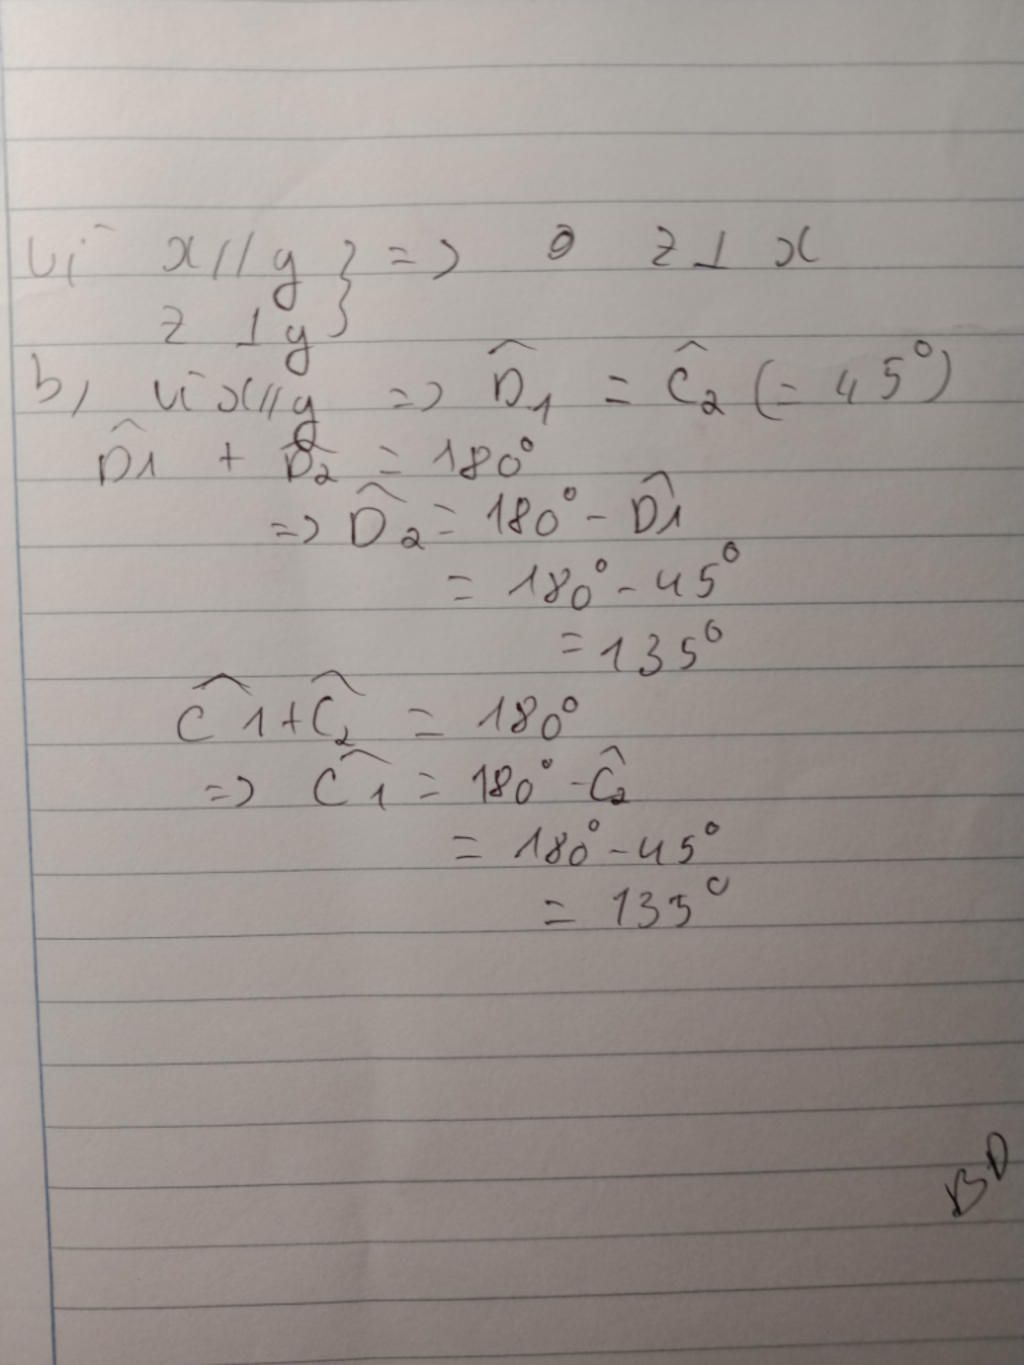 Vì x // y } => z ⊥ x
z ⊥ y
b, vì x // y => D̂1 = Ĉ2 (= 45°)
D̂1 + D̂2 = 180°
=> D̂2 = 180° - D̂1
= 180° - 45°
= 135°
Ĉ1 + Ĉ2 = 180°
=> Ĉ1 = 180° - Ĉ2
= 180° - 45°
= 135°
BD